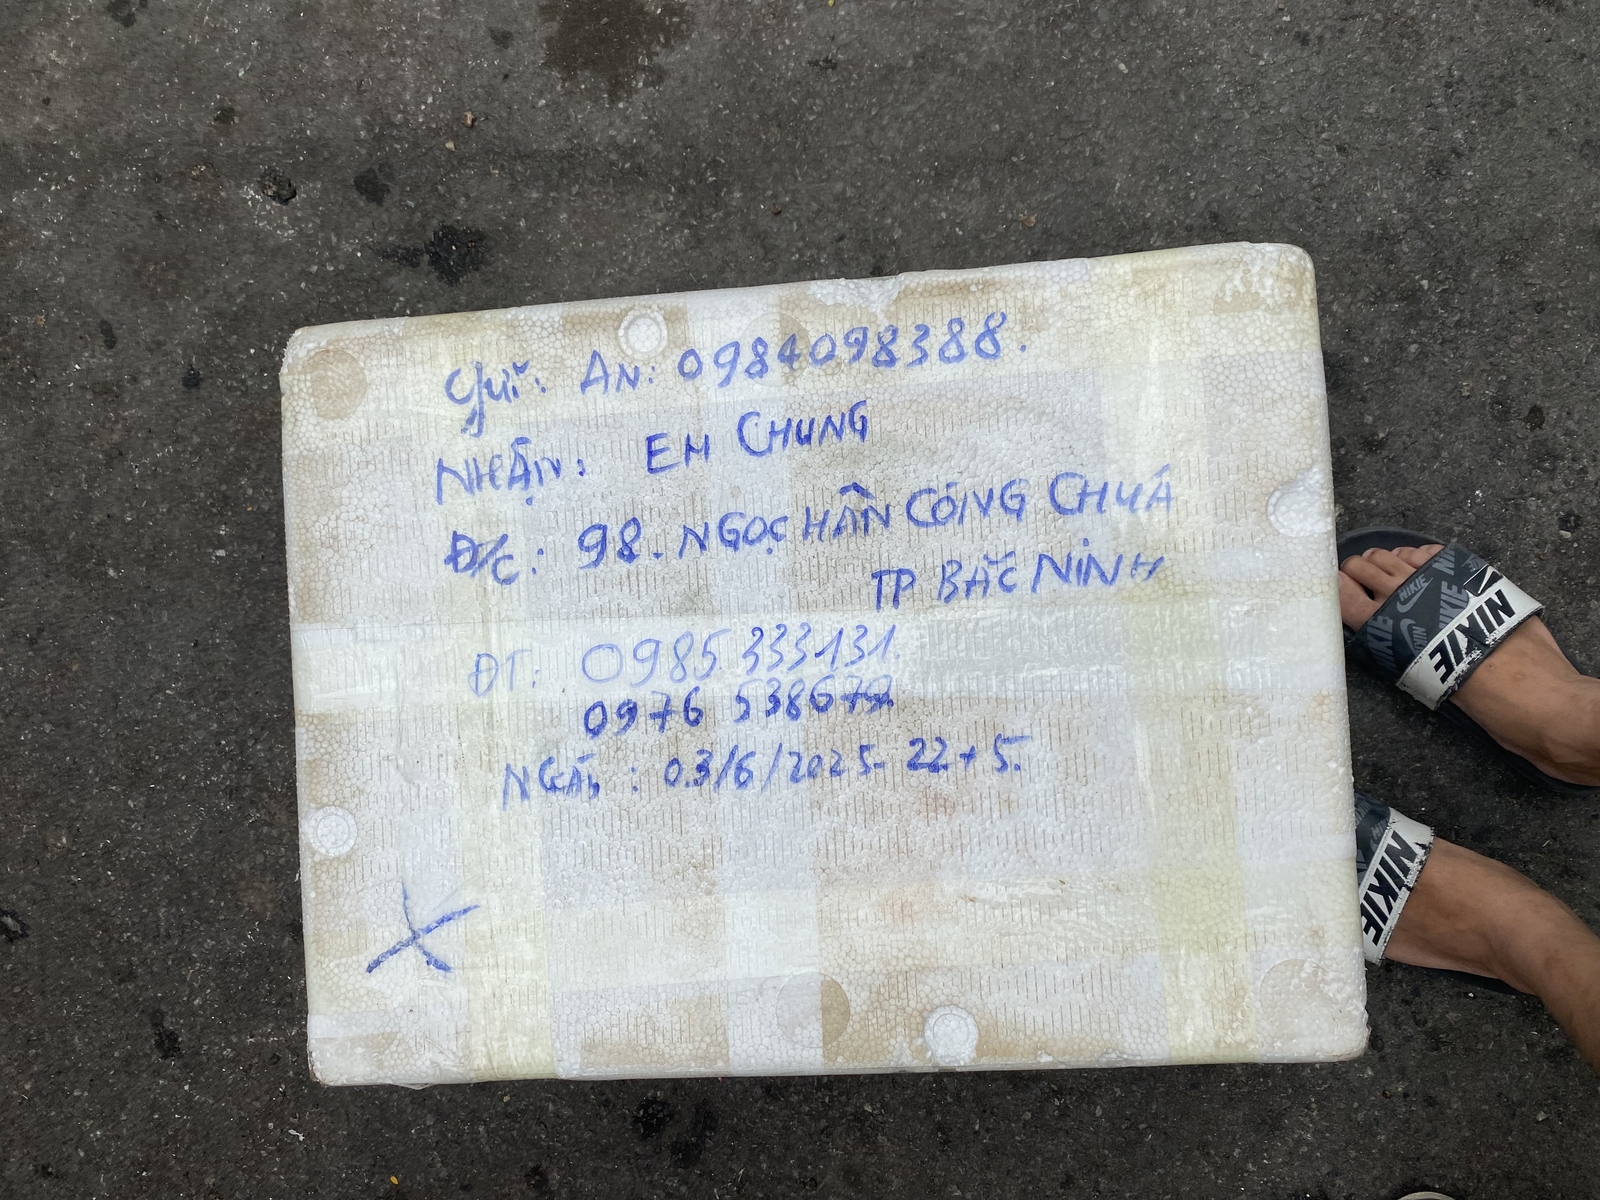 Gửi: AN: 0984098388.
NHẬN: EM CHUNG
Đ/C: 98. NGỌC HÂN CÔNG CHÚA
TP BẮC NINH
ĐT: 0985 333131.
0976 538679
NGÀY: 03/6/2025 22+5.
NIKIE
NIKIE